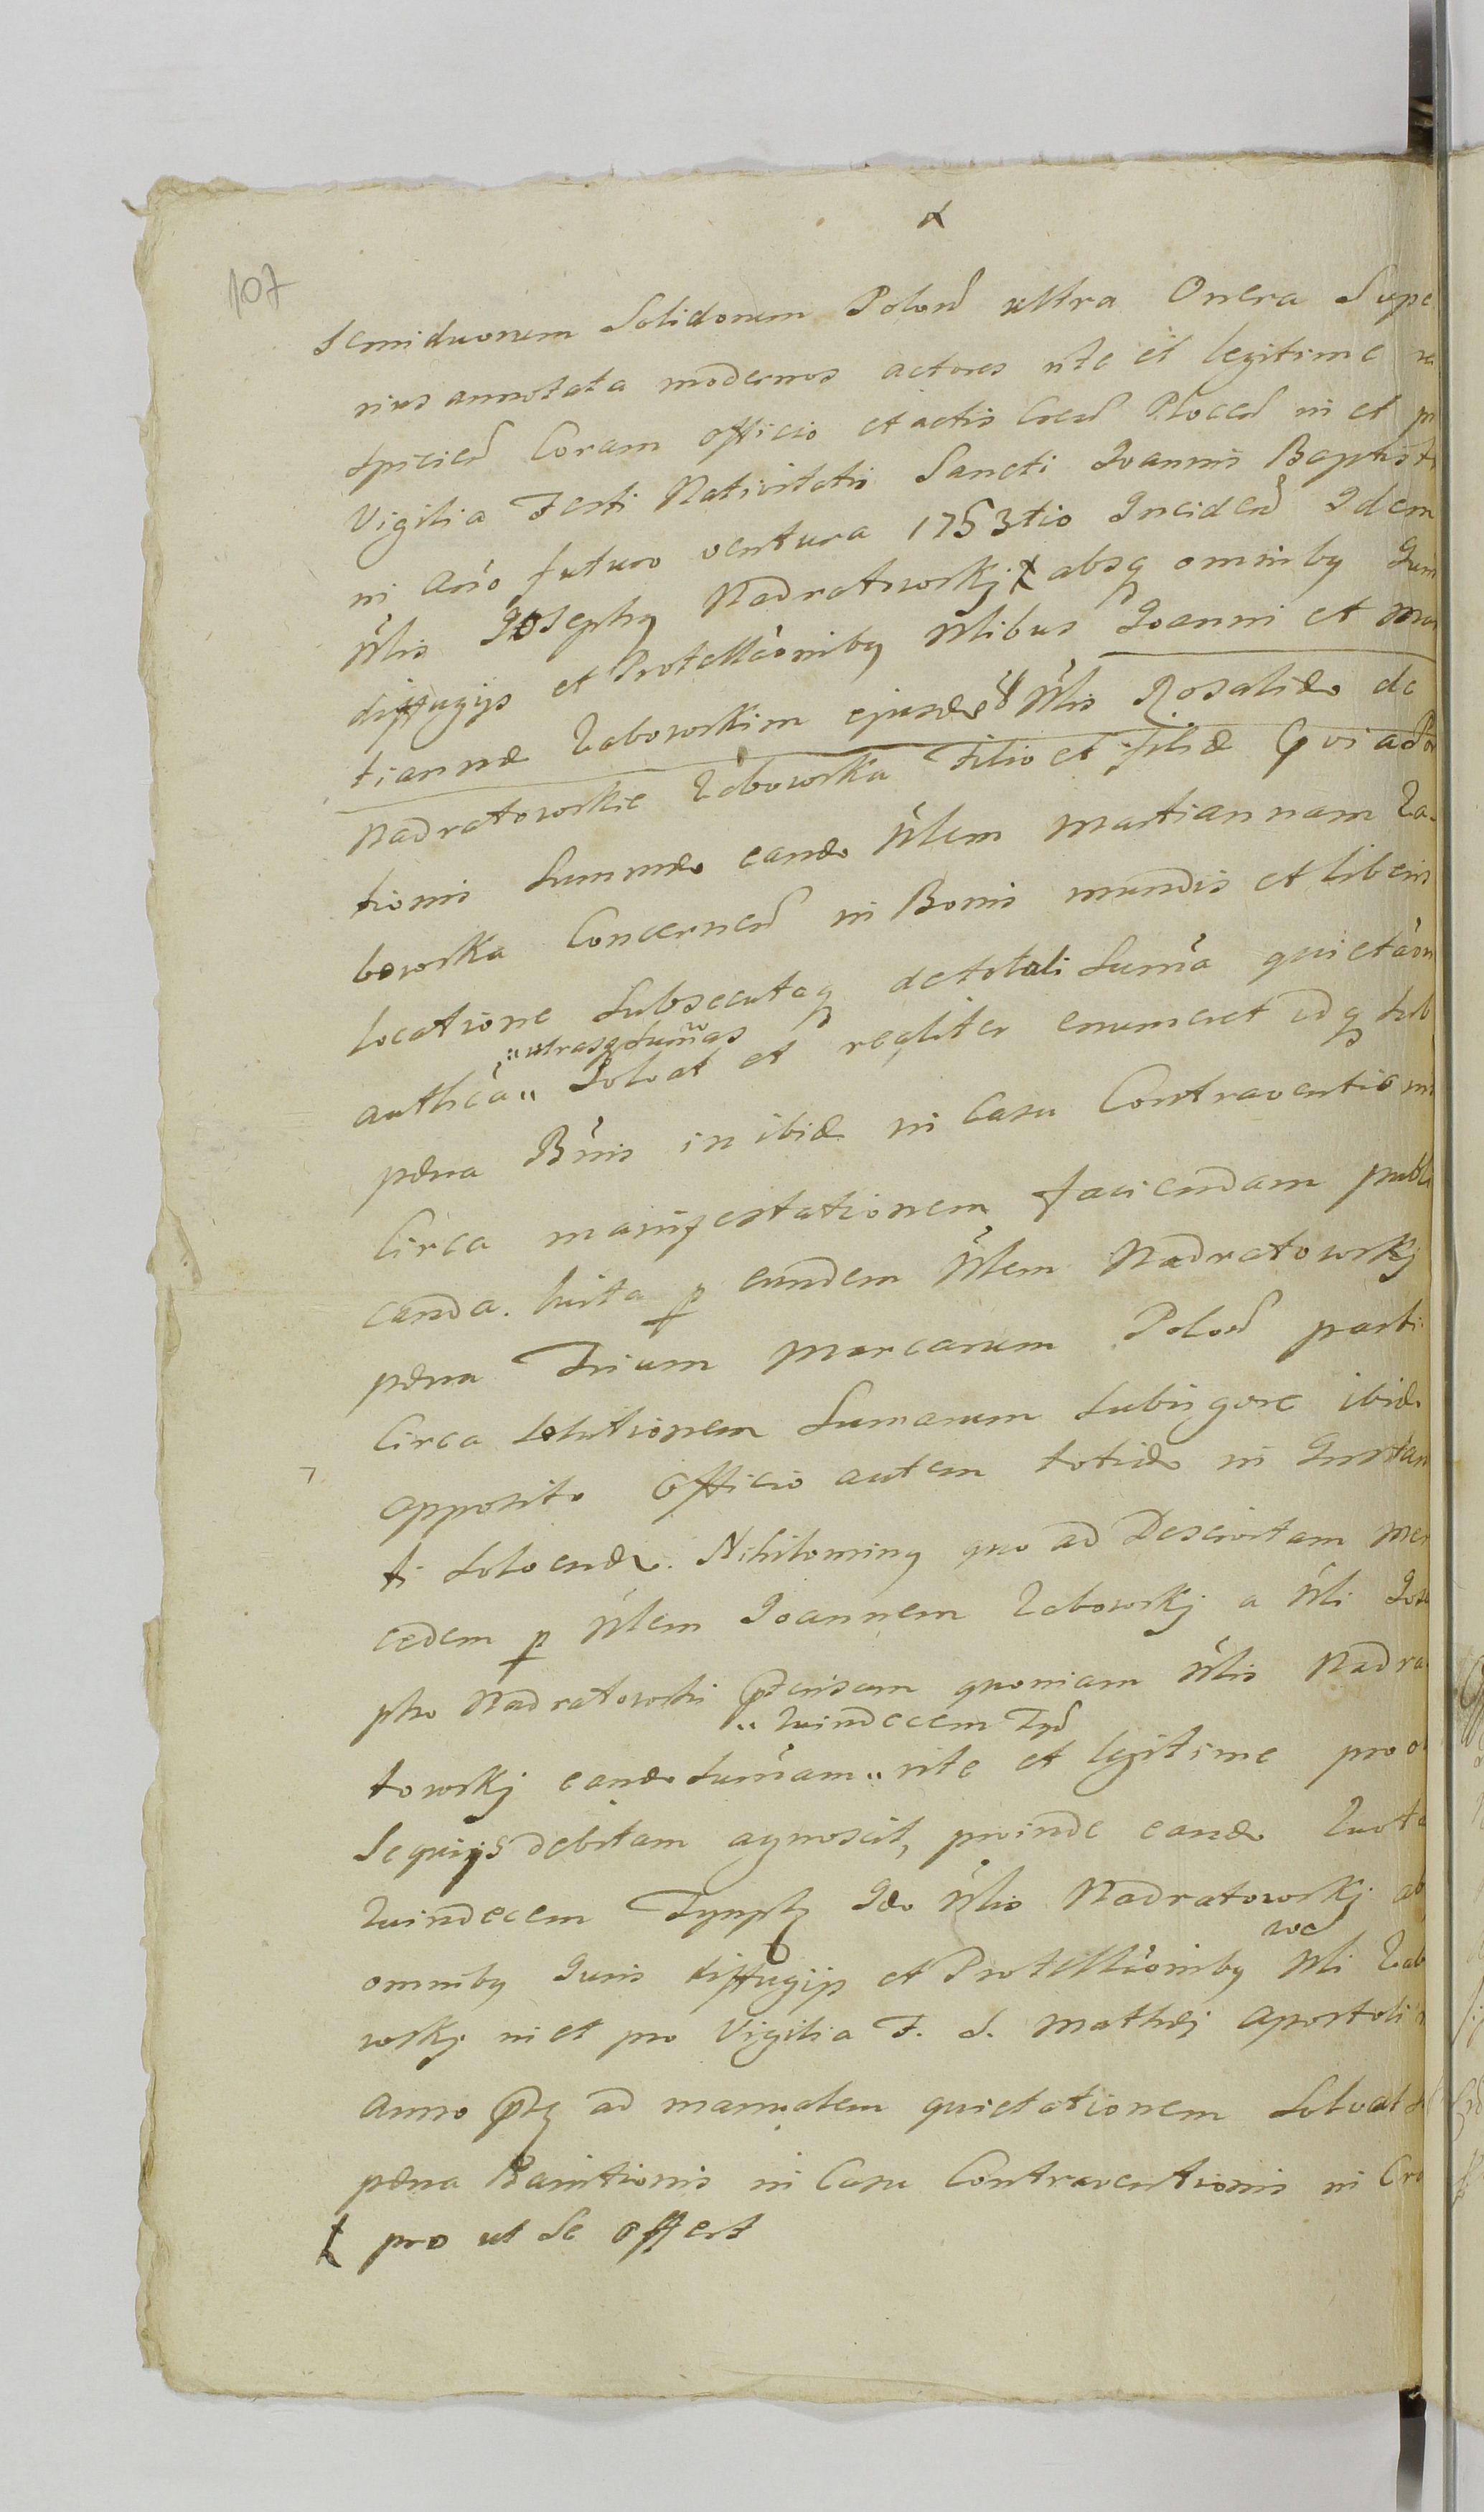 107
semiduorum Solidorum Polon ultra Onera Supe
rius annotata modernos actores rite et legitime
spicien Coram officio et actis Cren Plocen in et
Vigilia Festi Nativitatis Sancti Joannis Baptist
in Ano futuro ventura 1753tio Inciden Idem
Nlis Josephg Nadratowskj absq omnibg
diffugijs et Protellaonibg Nlibus Joanni et Mar
tiannæ Zabowskim ejusde Nlis Rosaliæ de
Nadratowskie Zabowska Filio et filiæ Qui
tionis Summæ eande Nlem Martiannam Za
bowska Concernen in Bonis mundis et liberis
locatione Subsecutaq de totali Suma quietaon
"utrasq Sumas
authca" Solvat et realiter enumeret idq Sub
pæna Bnis in ibid in Casu Contraventionis
Circa manifestationem faciendam publi
canda. Luita p eundem Nlem Nadratowskj
pæna Trium Marcarum Polon parti
Circa Solutionem Sumarum Subiigore ibid
apposito Officio autem totid in Instan
ti Solvend. Nihiloming quo ad Deservitam Mer
cedem p Nlem Joannem Zabowskj a Nli Jose
pho Nadratowski quoniam Nlis Nadra
"Quindecem Tyn
towskj eande Sumam" rite et legitime pro
Sequijs debitam agnoscit, proinde eande Quota
Quindecem Tynph Ide Nlis Nadratowskj
omnibg Juris diffugijs et Protellaonibg Nli Zab
wskj in et pro Vigilia F. S. Mathæj Apostoli
Anno ad manualem quietationem Solvat
pæna Banitionis in Casu Contraventionis in
pro ut Se offert